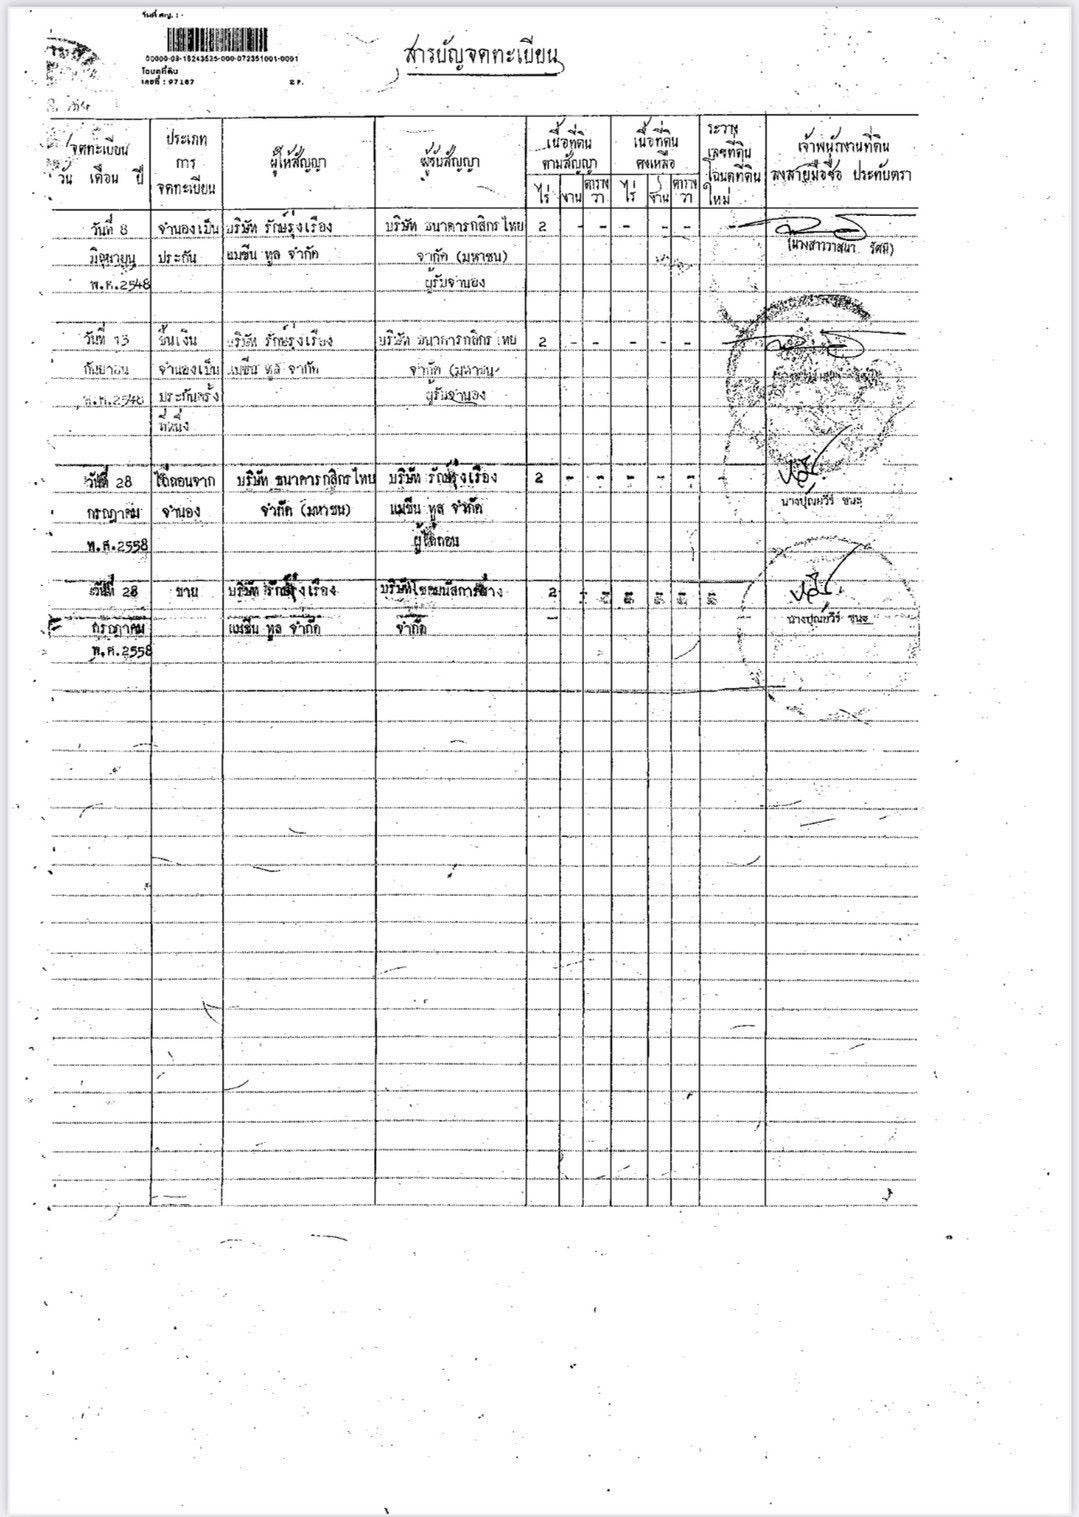 วันที่ สญ. : -
00000-09-10243525-000-072351001-0001
โฉนดที่ดิน
เลขที่ : 97187
2 F.
สารบัญจดทะเบียน
จดทะเบียน
วัน เดือน ปี
ประเภท
การ
จดทะเบียน
ผู้ให้สัญญา
ผู้รับสัญญา
เนื้อที่ดิน
ตามสัญญา
ไร่ งาน ตาราง
วา
เนื้อที่ดิน
คงเหลือ
ไร่ งาน ตาราง
วา
ระวาง
เลขที่ดิน
โฉนดที่ดิน
ใหม่
เจ้าพนักงานที่ดิน
ลงลายมือชื่อ ประทับตรา
วันที่ 8 จำนองเป็น บริษัท รักษ์รุ่งเรือง บริษัท ธนาคารกสิกรไทย 2 - - - - -
มิถุนายน ประกัน แมชีน ทูล จำกัด จำกัด (มหาชน)
พ.ศ.2548 ผู้รับจำนอง
(นางสาววาสนา รัศมี)
วันที่ 13 ขึ้นเงิน บริษัท รักษ์รุ่งเรือง บริษัท ธนาคารกสิกรไทย 2 - - - - -
กันยายน จำนองเป็น แมชีน ทูล จำกัด จำกัด (มหาชน
พ.ศ.2548 ประกันครั้ง ผู้รับจำนอง
ที่หนึ่ง
วันที่ 28 ไถ่ถอนจาก บริษัท ธนาคารกสิกรไทย บริษัท รักษ์รุ่งเรือง 2 - - - - -
กรกฎาคม จำนอง จำกัด (มหาชน) แมชีน ทูล จำกัด
พ.ศ.2558 ผู้ไถ่ถอน
นางปุณยวีร์ ชนะ
วันที่ 28 ขาย บริษัท รักษ์รุ่งเรือง 2
กรกฎาคม แมชีน ทูล จำกัด จำกัด
พ.ศ.2558
นางปุณยวีร์ ชนะ